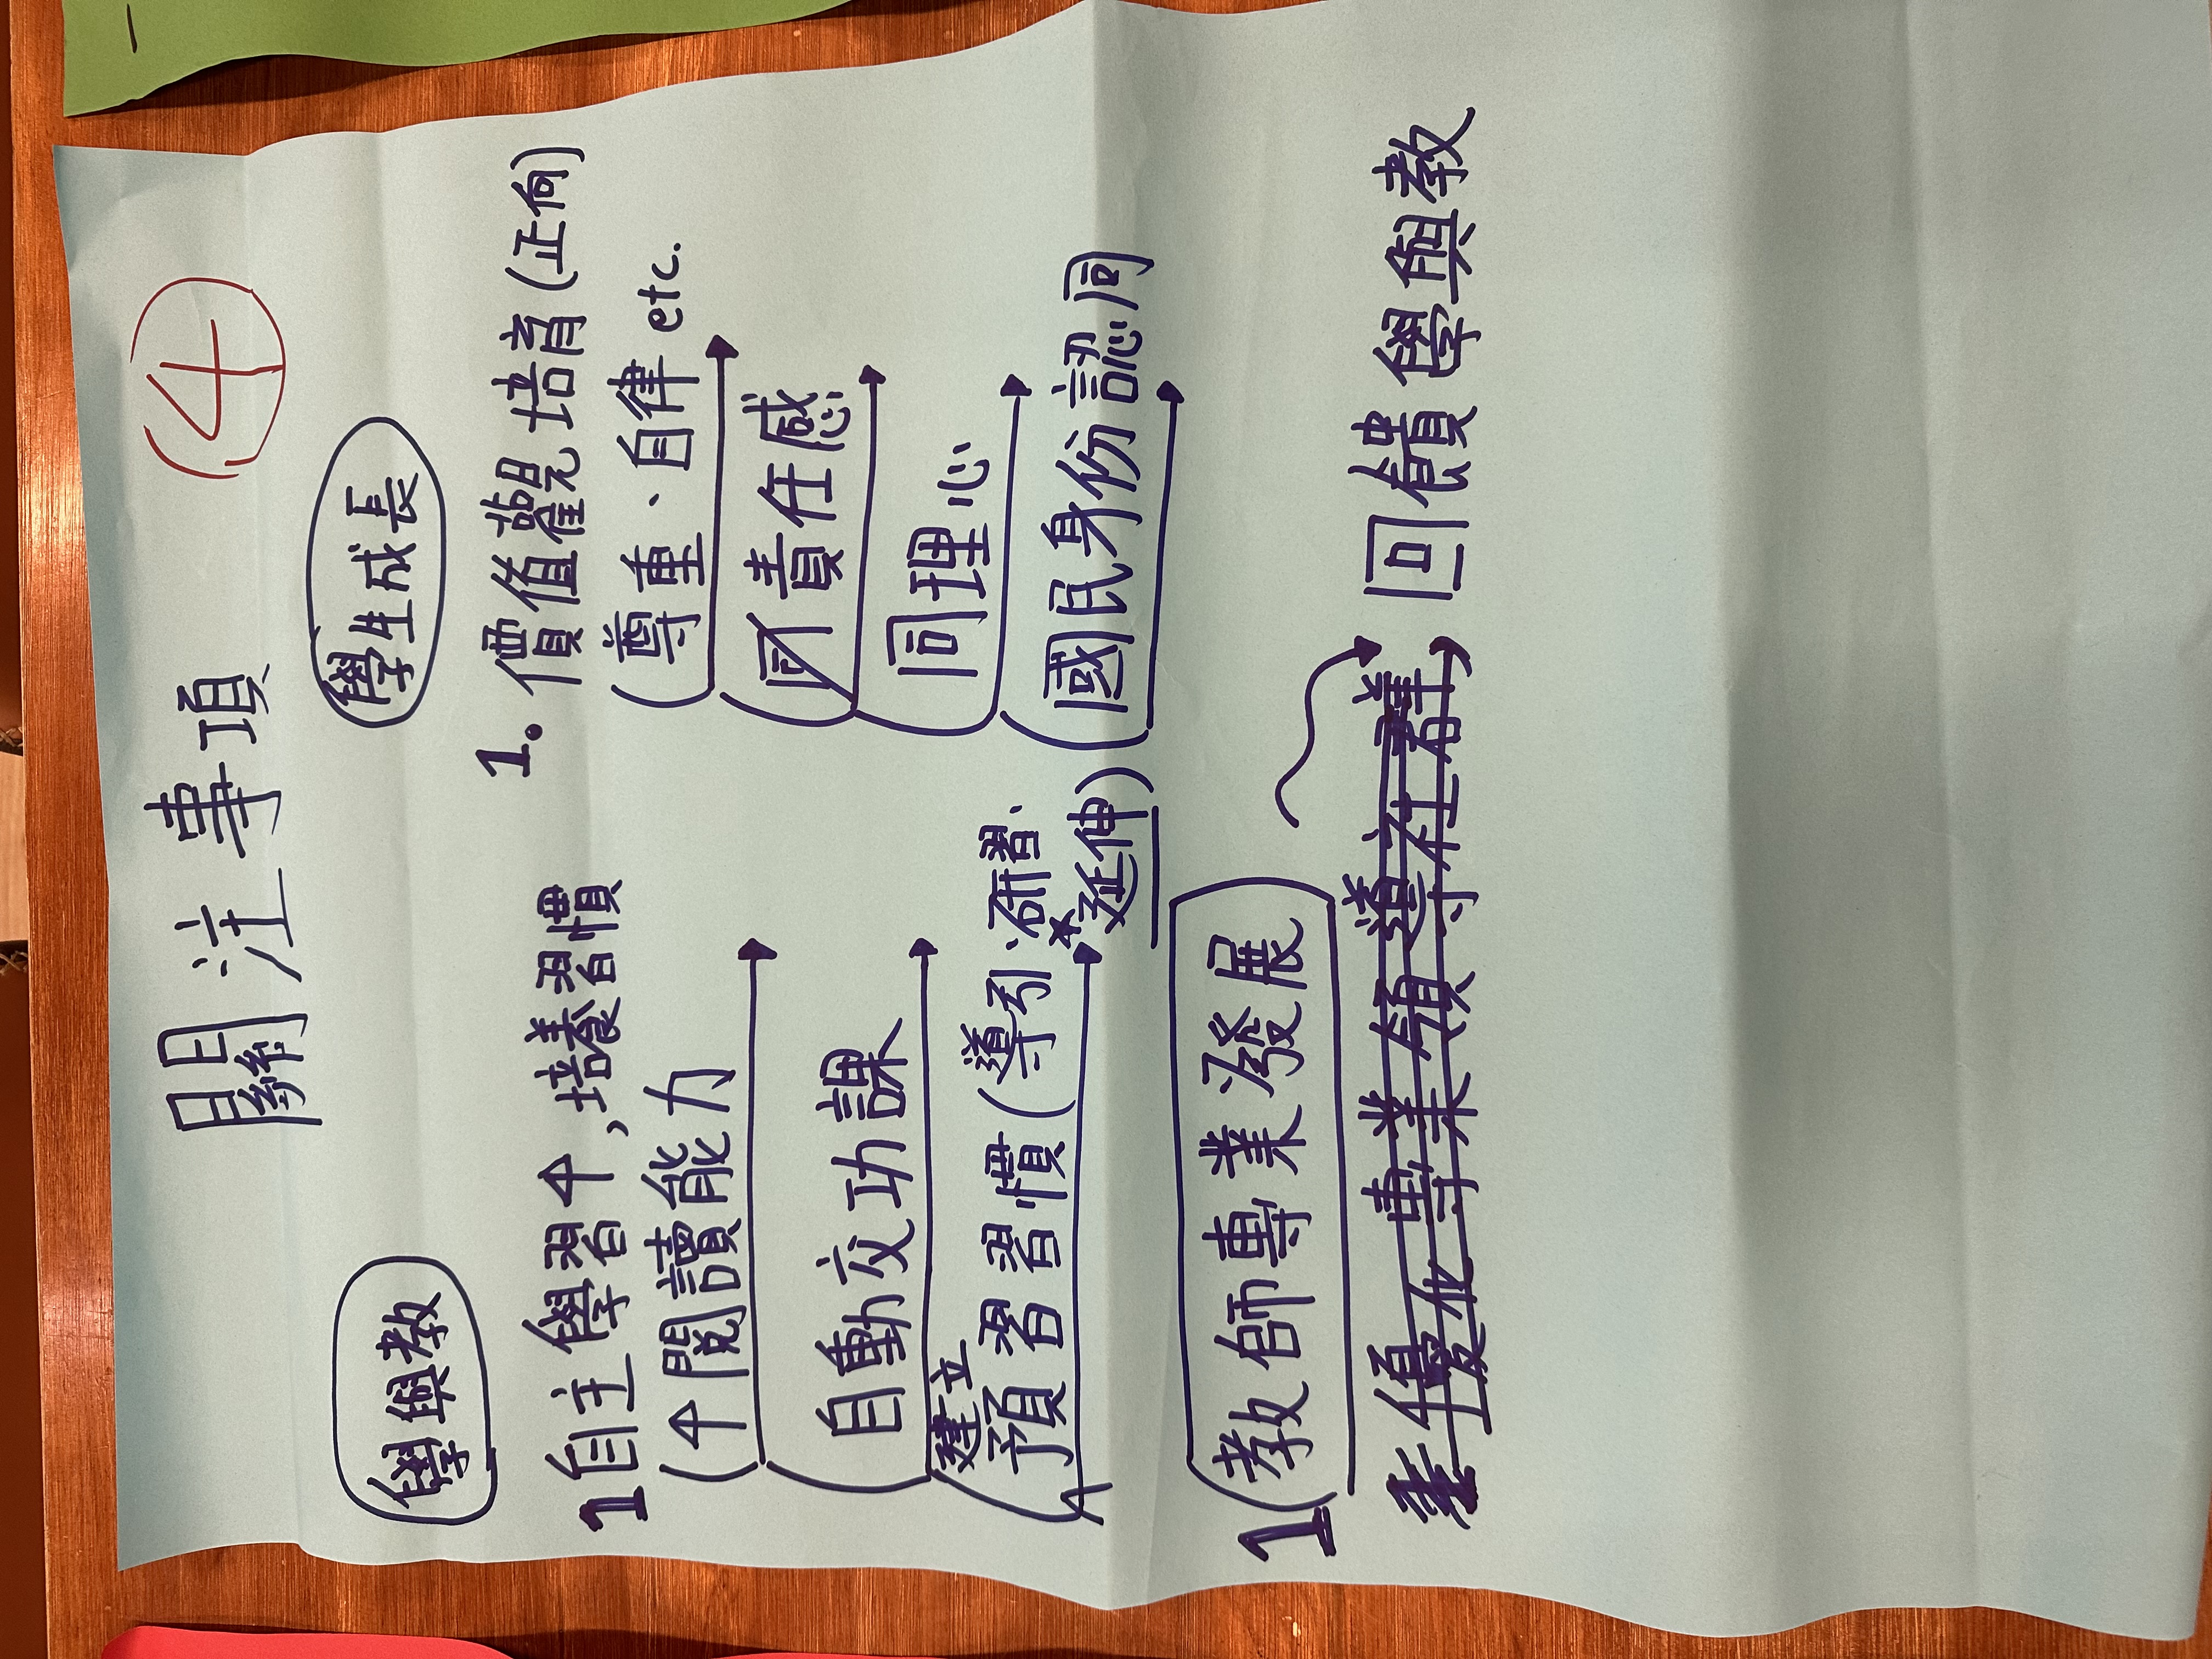 關注事項
④
學與教
1 自主學習↑,培養習慣
(↑閱讀能力
自動交功課
建立
預習習慣(導引、研習、
*延伸)
學生成長
1. 價值觀培育(正向)
(尊重、自律 etc.
責任感
同理心
國民身份認同
1(教師專業發展
優化專業領導社群,回饋學與教